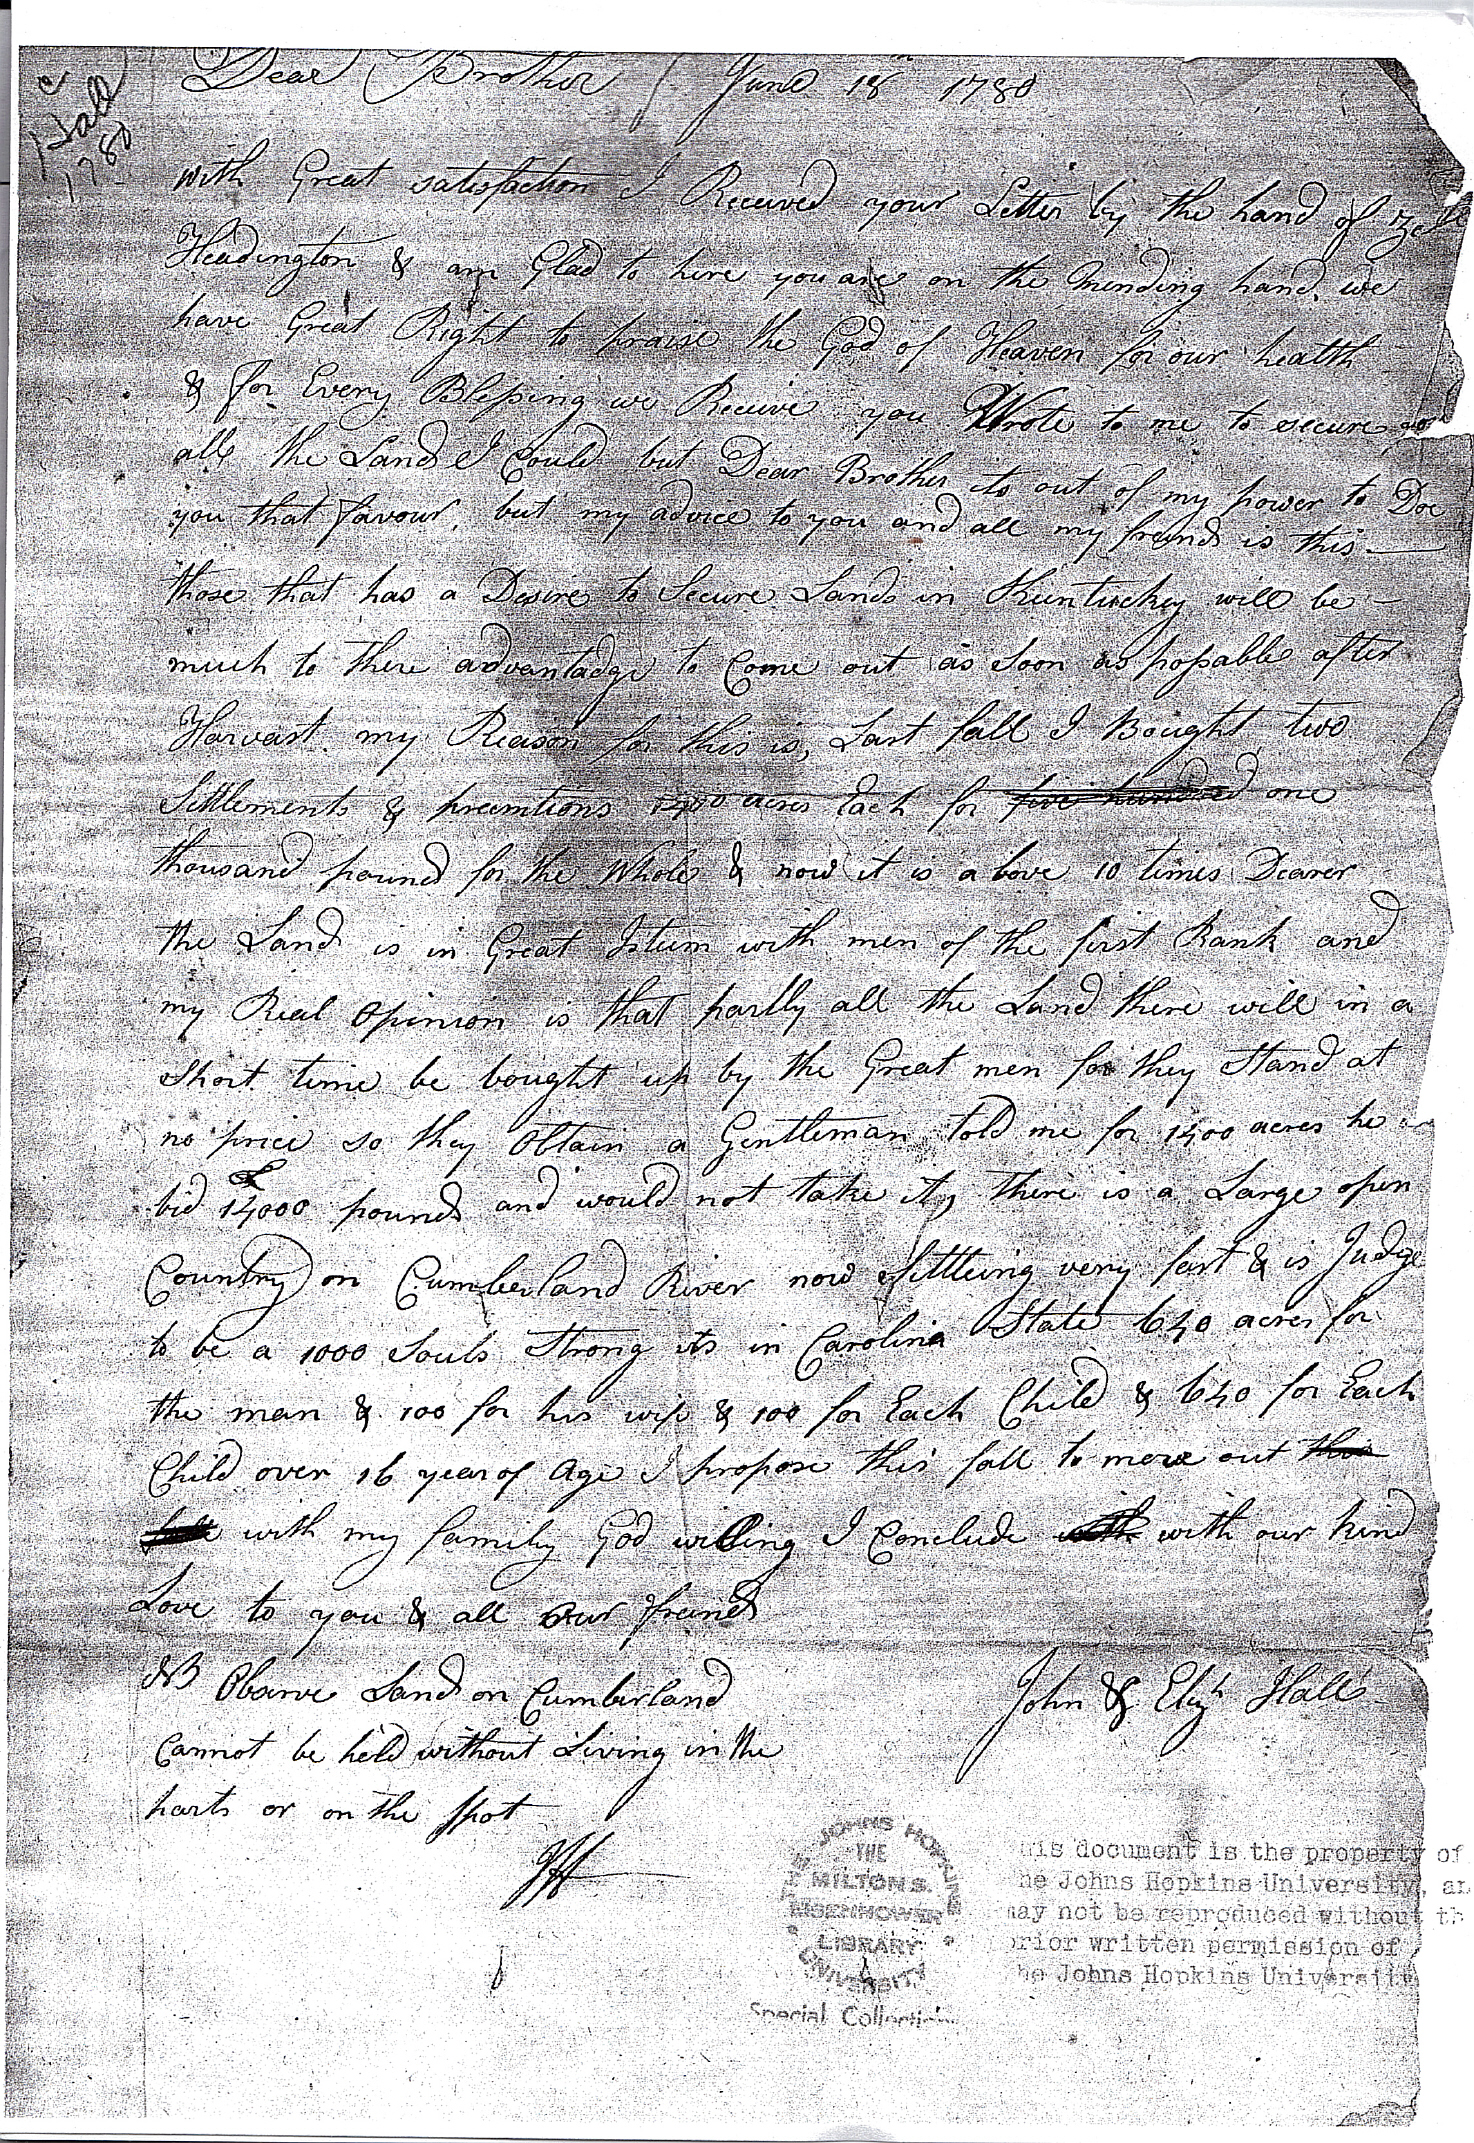 Hall
1780
Dear Brother June 18 1780
with Great satisfaction I Received your Letter by the hand of
Headington & am Glad to here you are on the mending hand, we
have Great Right to praise the God of Heaven for our health
& for Every Blessing we Receive you Wrote to me to secure
all the Land I Could but Dear Brother its out of my power to Doe
you that favour, but my advice to you and all my freinds is this —
those that has a Desire to Secure Lands in Kuntuckey will be —
much to there advantadge to Come out as soon as possable after
Harvast. my Reason for this is, Last fall I Bought two
Settlements & preemtions 1400 acres Each for five hundred one
thousand pound for the Whole & now it is above 10 times Dearer
the Land is in Great Isteem with men of the first Rank and
my Real Opinion is that partly all the Land there will in a
short time be bought up by the Great men for they Stand at
no price so they Obtain a Gentleman told me for 1400 acres he
bid 14000 pounds and would not take it, there is a Large open
Country on Cumberland River now Settleing very fast & is Judge
to be a 1000 Souls Strong its in Carolina State 640 acres for
the man & 100 for his wife & 100 for Each Child & 640 for Each
Child over 16 year of Age I propose this fall to move out this
fall with my family God willing I Conclude with with our kind
Love to you & all our freinds
NB Observe Land on Cumberland
Cannot be held without Living in the
parts or on the spot
John & Elizh Hall
JH
THE JOHNS HOPKINS UNIVERSITY
THE
MILTON S.
EISENHOWER
LIBRARY
Special Collections
his document is the property of
he Johns Hopkins University, an
may not be reproduced without th
prior written permission of
he Johns Hopkins University